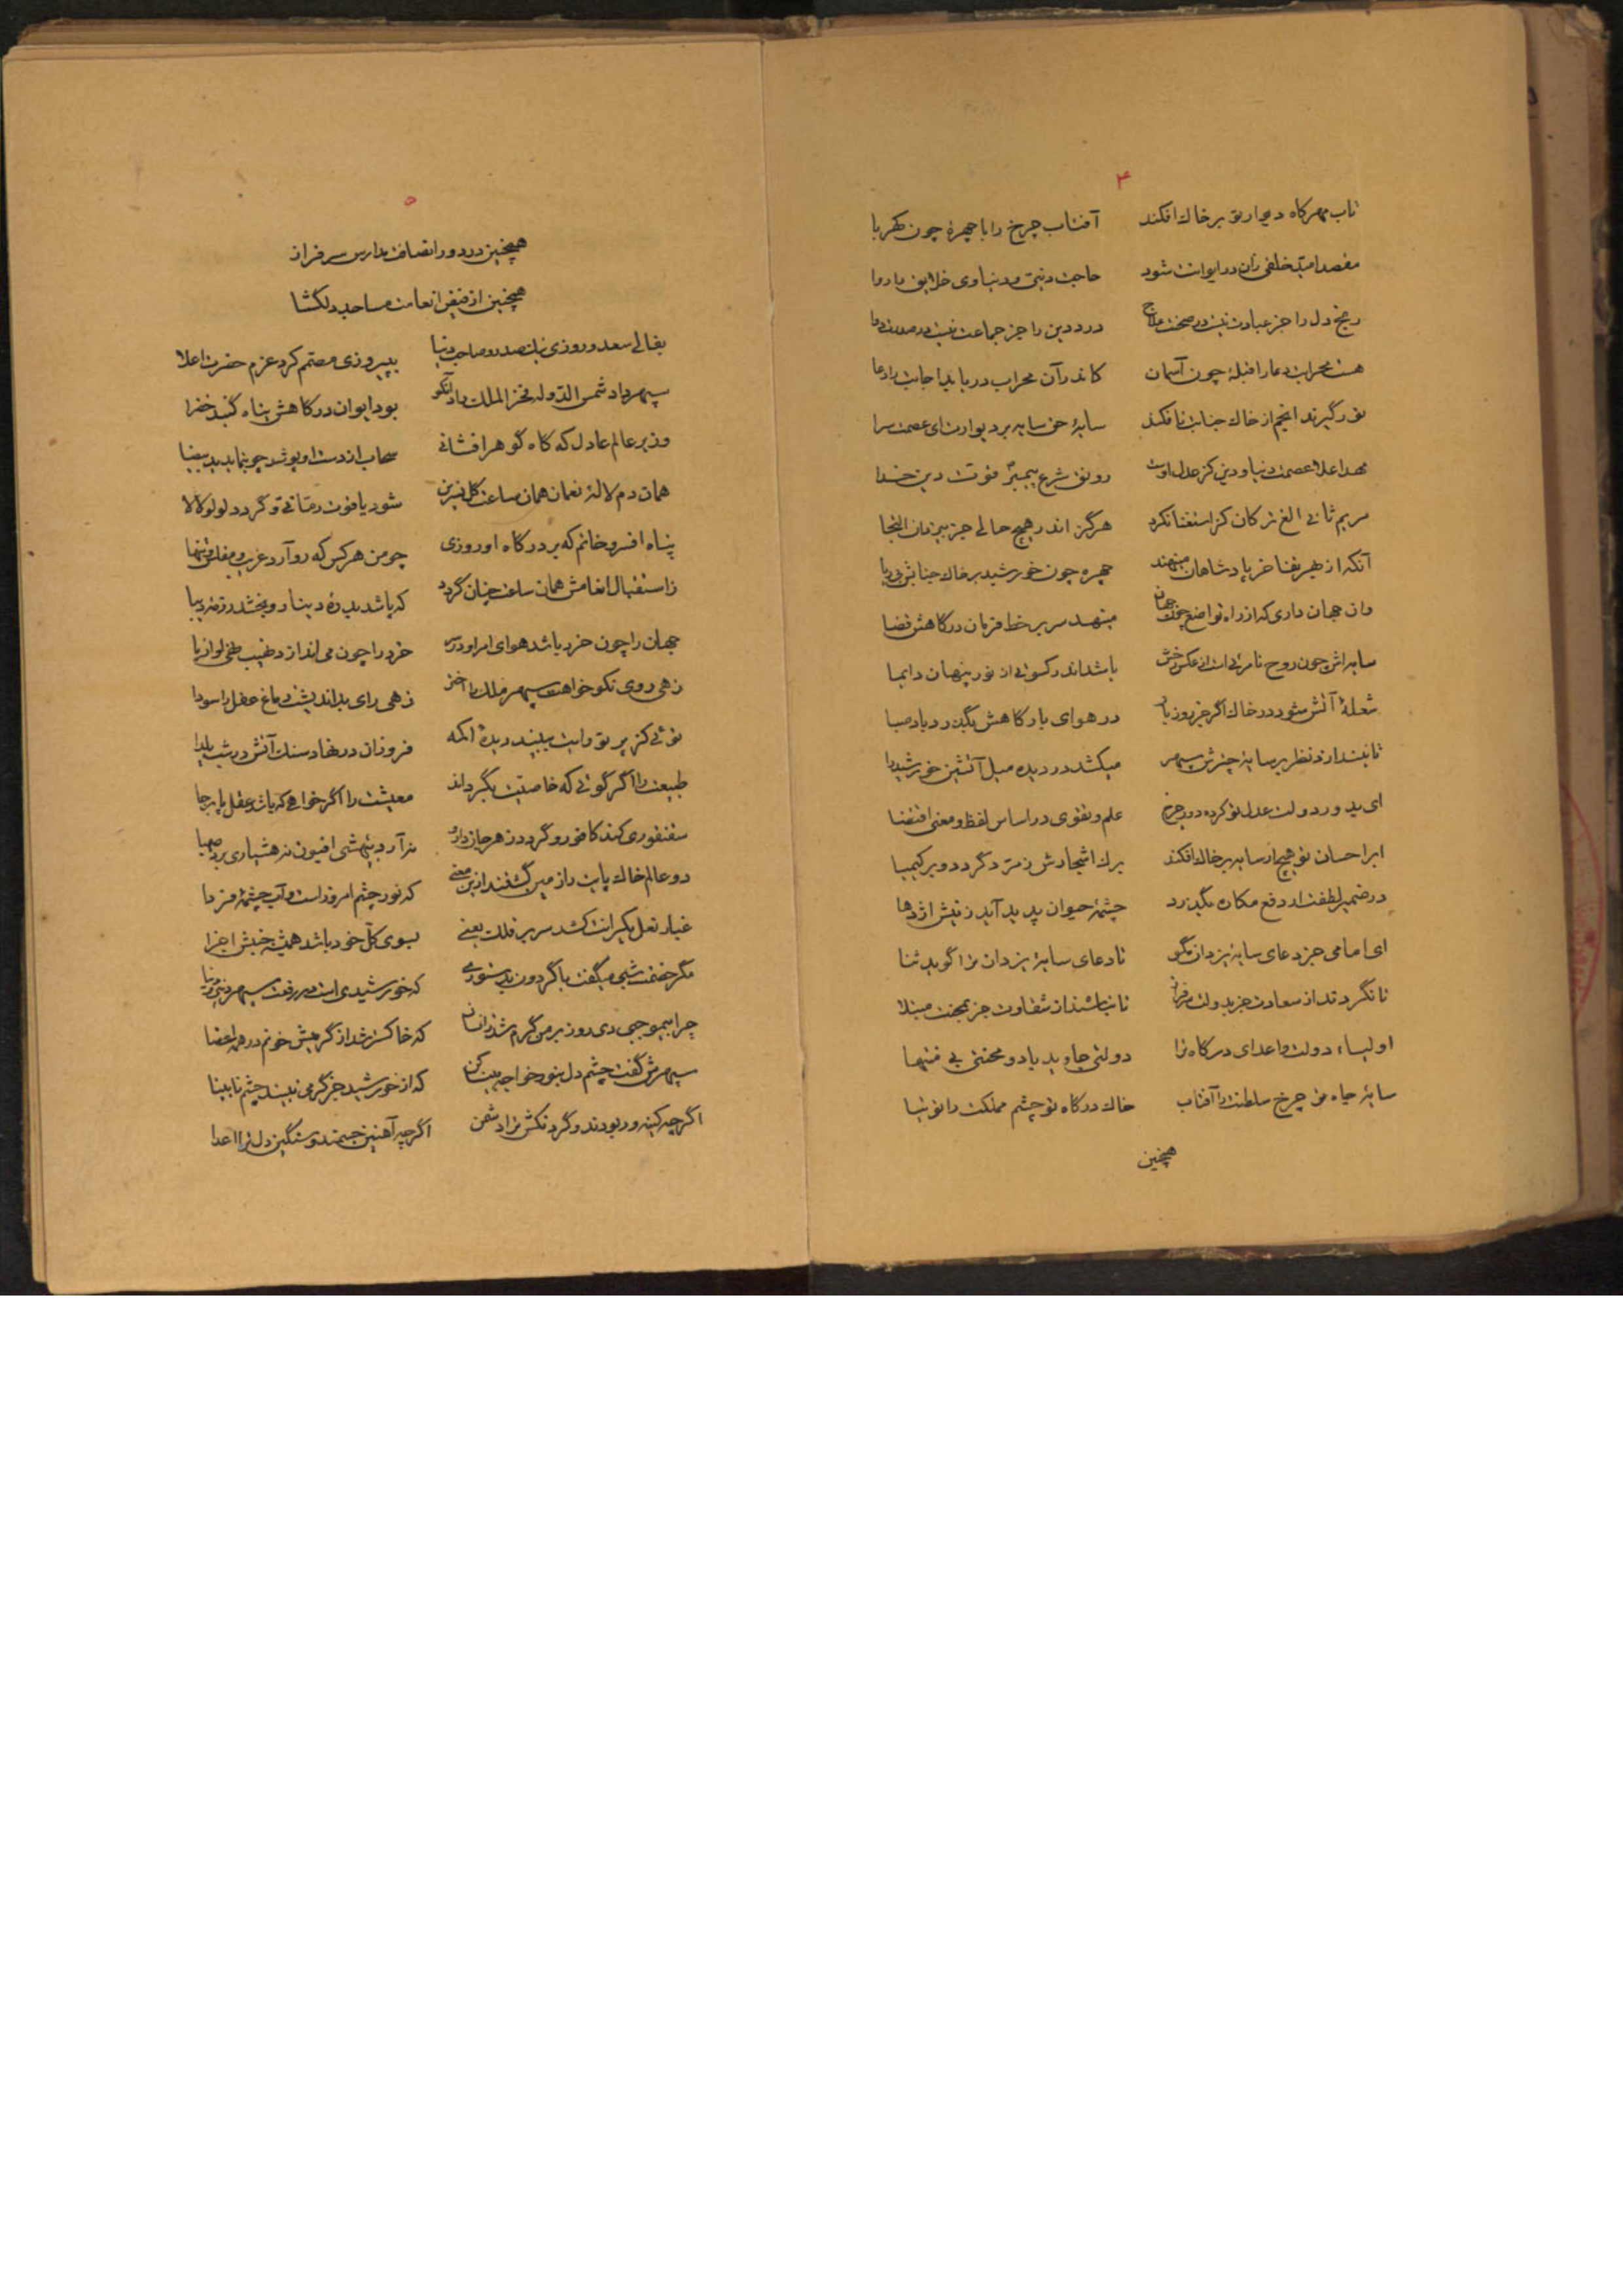 ۴
تاب مهر کاه دیوار تو بر خاك افکند آفتاب چرخ را با چهرهٔ چون کهربا
مقصد امید خلقی زان در ایوانت شود حاجت دینی و دنیاوی خلایق را روا
رنج دل را جز عبادت نیست در صحنت علاج درد دین را جز جماعت نیست در صدرت دوا
هست محرابت دعا را قبلهٔ چون آسمان کاندر آن محراب دریابد اجابت را دعا
نور گیرند انجم از خاك جنابت تا فکند سایهٔ حق سایه بر دیوارت ای عصمت سرا
مهد اعلا عصمت دنیا و دین کز عدل اوست رونق شرع پیمبر قوت دین خدا
مریم ثانی الغ ترکان کز استغنا نکرد هرگز اندر هیچ حالی جز بیزدان التجا
آنکه از بهر تفاخر پادشاهان مینهند چهره چون خورشید بر خاك جنابش بی ریا
وان جهان داری که از راه تواضع چون جهان مینهد سر بر خط فرمان درگاهش قضا
سایه اش چون روح نامرئی است از عکس رخش باشد اندر کسوتی از نور پنهان دایما
شعلهٔ آتش شود در خاك اگر جز روز بار در هوای بارگاهش بگذرد باد صبا
تا نیندازد نظر بر سایهٔ چترش سپهر میکشد در دیده میل آتشین خورشید را
ای بدور دولت عدل تو کرده دور چرخ علم و تقوی در اساس لفظ و معنی اقتضا
ابر احسان تو هیچ ار سایه بر خاك افکند برك اشجارش زمرد گردد و بر کیمیا
در ضمیر لطفت ار دفع مکاره بگذرد چشمهٔ حیوان پدید آید ز نیش اژدها
ای امامی جز دعای سایهٔ یزدان مگو تا دعای سایهٔ یزدان ترا گوید ثنا
تا نگردند از سعادت جز بدولت سرفراز تا نباشند از شقاوت جز بمحنت مبتلا
اولیاء دولت و اعدای درگاه ترا دولتی جاوید باد و محنتی بی منتها
سایهٔ جاه تو چرخ سلطنت را آفتاب خاك درگاه تو چشم مملکت را توتیا
همچنین
۵
همچنین در دور انصافت مدارس سرفراز
همچنین از فیض انعامت مساجد دلگشا
بفالی سعد و روزی نیك صدر و صاحب دنیا بپیروزی مصمم کرد عزم حضرت اعلا
سپهر داد شمس الدوله فخر الملك راد آنکو بود ایوان درگاهش پناه گنبد خضرا
وزیر عالم عادل که گاه گوهر افشانی سحاب از دست او پوشد چو بنماید ید بیضا
همان دم لالهٔ نعمان همان ساعت گل نسرین شود یاقوت رمانی و گردد لولو لالا
پناه افسر و خاتم که بر درگاه او روزی چو من هر کس که رو آرد غریب و مفلس و تنها
ز استقبال انعامش همان ساعت چنان گردد که باشد بدرهٔ دینار و بخشد رزمهٔ دیبا
جهان را چون خرد باشد هوای امر او در سر خرد را چون می اندازد نهیب طی لوا از پا
زهی روی نکو خواهت سپهر ملك را اختر زهی رای بد اندیشت دماغ عقل را سودا
توئی کز پرتو رایت ببیند دیدهٔ اکمه فروزان در نهاد سنك آتش در شب یلدا
طبیعت را اگر گوئی که خاصیت بگرداند معیشت را اگر خواهی که باشد عقل پا برجا
سقنقوری کند کافور و گردد زهر جان دارو نه آرد بیهشی افیون نه هشیاری برد صهبا
دو عالم خاك پایت راز میری گشفند ازین معنی که نور چشم امروز است و آب چشمهٔ فردا
غبار نعل یکرانت کشد سر بر فلك یعنی بسوی کل خود باشد همیشه جنبش اجزا
مگر خصمت شبی میگفت با گردون بدستوری که خورشیدی است در رفعت سپهر دین و دنیا
چرا بیموجبی دی روز بر من گرم شد زانسان که خاکستر شد از گرمیش خونم در همه اعضا
سپهرش گفت چشم دل بنور خواجه بینا کن که از خورشید جز گرمی نبیند چشم نابینا
اگر چه کینه ور بودند و گردنکش نژاد شمن اگر چه آهنین جسمند و سنگین دل ترا اعدا